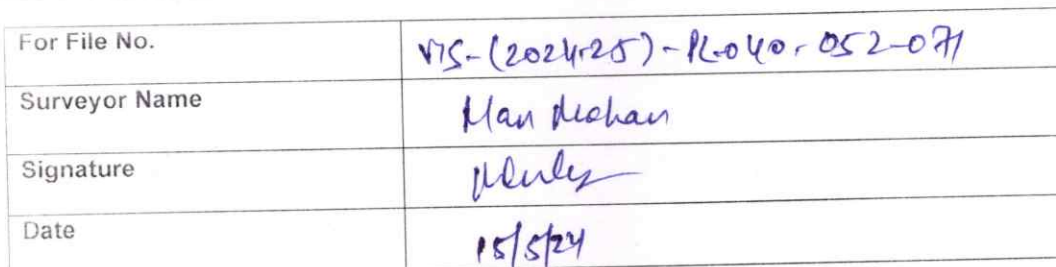 For File No. VIS-(2024-25)-PL-040-052-071
Surveyor Name Man Mohan
Signature
Date 15/5/24